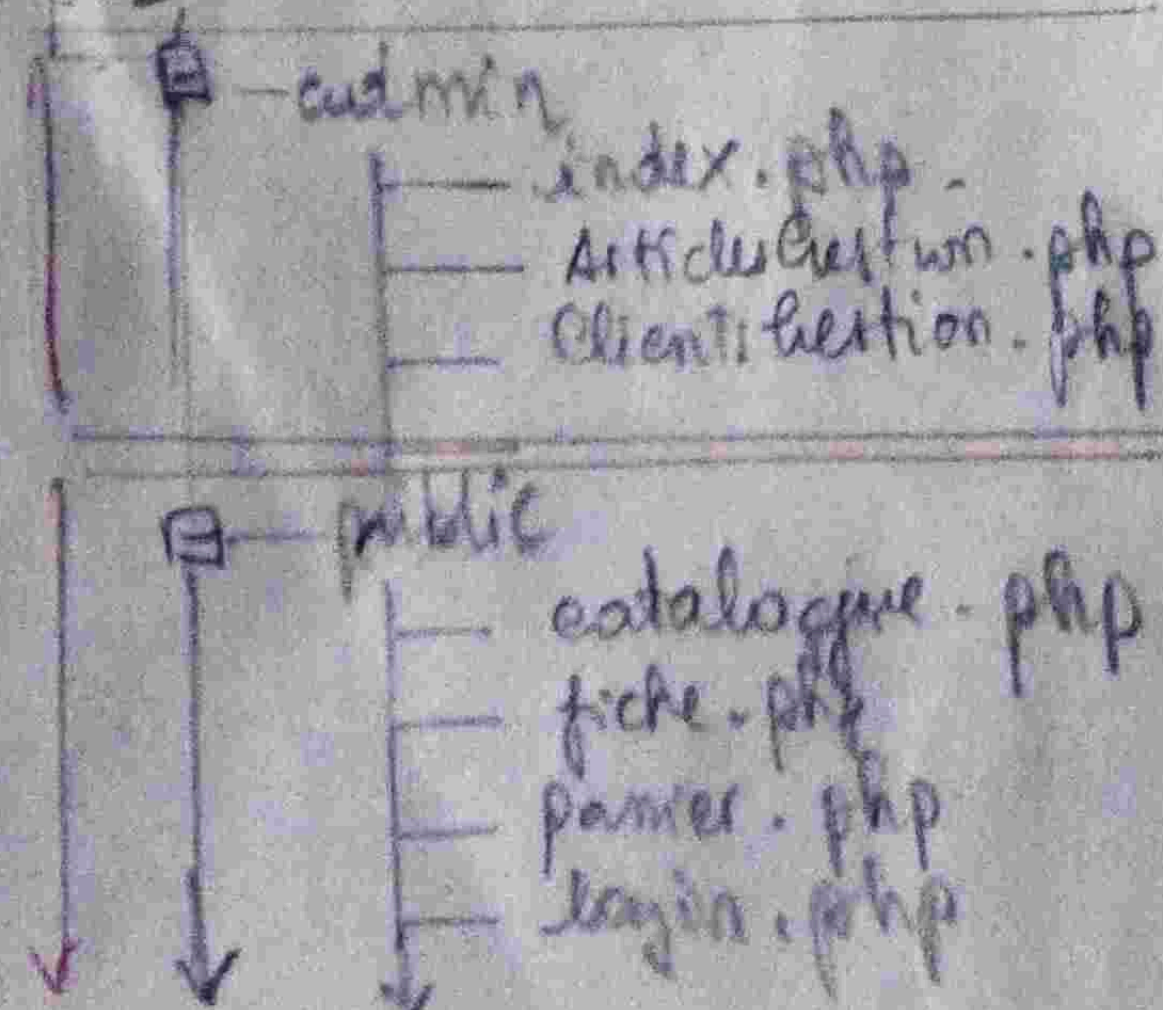 admin
index.php
ArticlesGestion.php
ClientsGestion.php
public
catalogue.php
fiche.php
panier.php
login.php